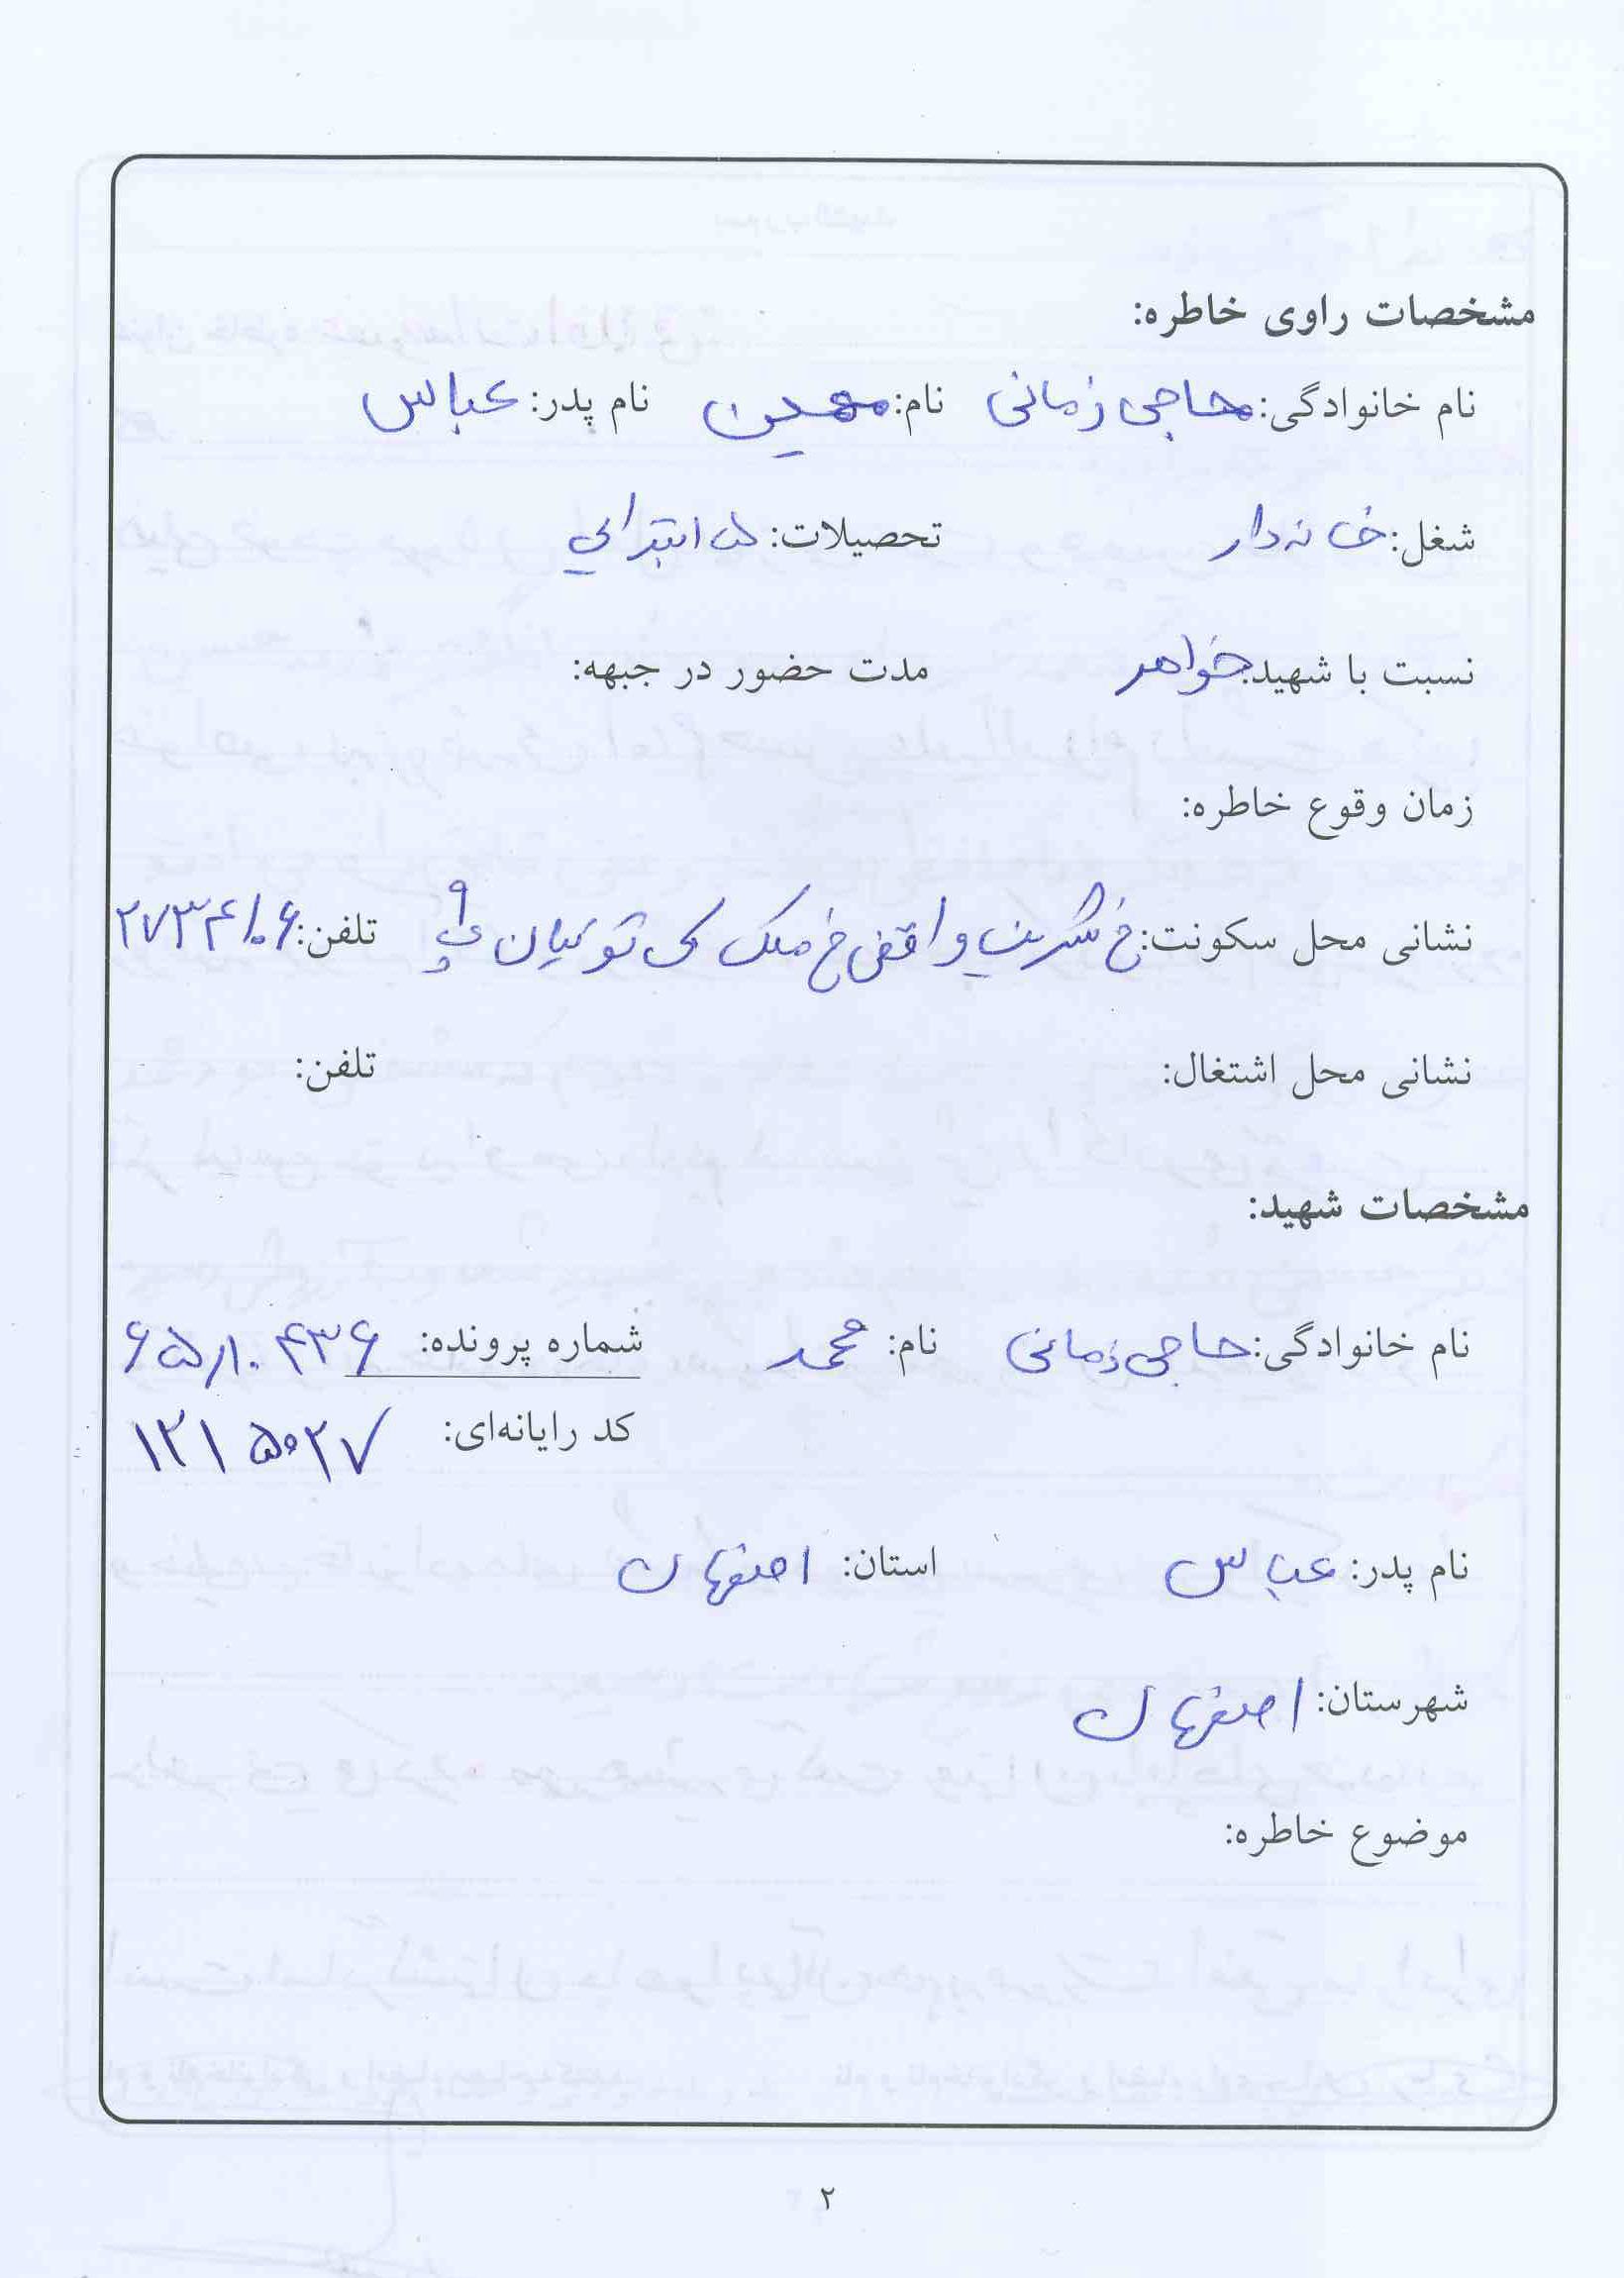 مشخصات راوی خاطره:
نام خانوادگی: حاجی زمانی نام: مهین نام پدر: عباس
شغل: خانه دار تحصیلات: ۵ ابتدایی
نسبت با شهید: خواهر مدت حضور در جبهه:
زمان وقوع خاطره:
نشانی محل سکونت: خ شریف واقفی خ ملک ک توکلیان پ ۹ تلفن: ۲۷۳۴۱۰۶
نشانی محل اشتغال: تلفن:
مشخصات شهید:
نام خانوادگی: حاجی زمانی نام: محمد شماره پرونده: ۶۵/۱۰۴۳۶
کد رایانه‌ای: ۱۲۱۵۰۲۷
نام پدر: عباس استان: اصفهان
شهرستان: اصفهان
موضوع خاطره:
۲